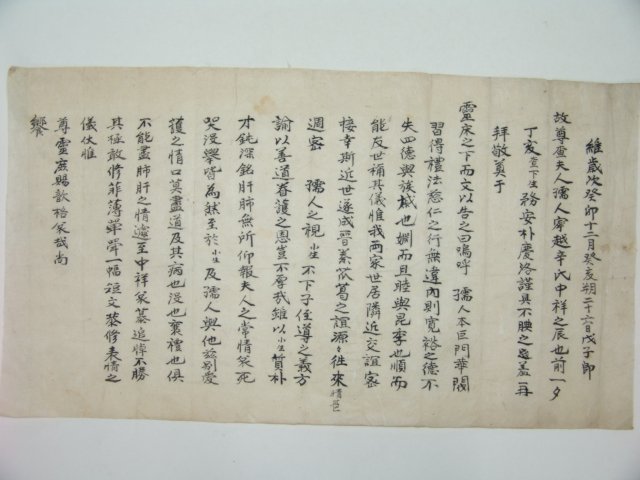 維歲次癸卯十二月癸亥朔二十六日戊子卽
故尊查夫人孺人寧越辛氏中祥之辰也前一夕
丁亥査下生務安朴慶洛謹具不腆之羞再
拜敬奠于
靈床之下而文以告之曰嗚呼 孺人本巨門華閥
習得禮法慈仁之行無違內則寬裕之德不
失四德與族戚也婣而且睦與昆季也順而
能及世稱其儀惟我兩家世居隣近交誼密
接幸斯近世遂成晉秦苽葛之誼源々往來情
週密 孺人之視小生不下子侄導之義方
諭以善道眷護之恩豈不厚哉雖以小生質朴
才鈍深銘肝肺無所仰報夫人之常情哀死
哭沒擧皆爲然至於小生及孺人與他別愛
護之情口莫盡道及其病也沒也襄禮也俱
不能盡肺肝之情遽至中祥哀慕追悼不勝
其極敢修菲薄單單一幅短文恭修表情之
儀伏惟
尊靈庶賜歆格哀哉尙
饗